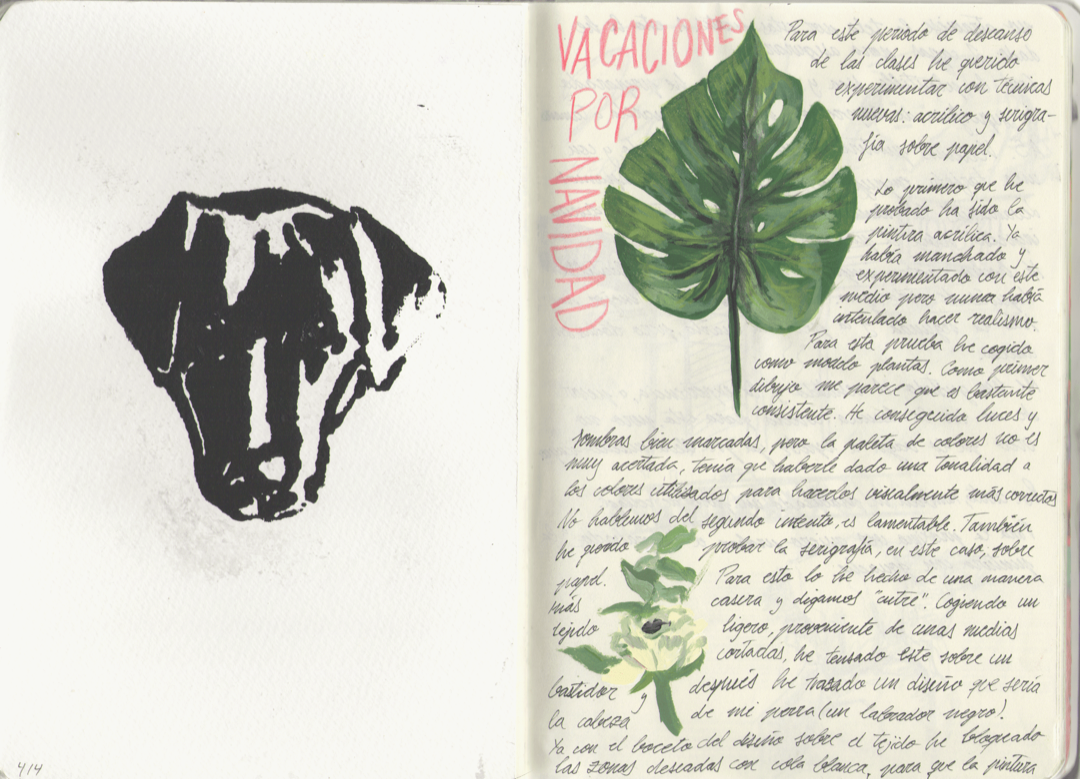 4/4
VACACIONES
POR
NAVIDAD
Para este periodo de descanso
de las clases he querido
experimentar con técnicas
nuevas: acrílico y serigra-
fía sobre papel.
Lo primero que he
probado ha sido la
pintura acrílica. Ya
había manchado y
experimentado con este
medio pero nunca había
intentado hacer realismo.
Para esta prueba he cogido
como modelo plantas. Como primer
dibujo me parece que es bastante
consistente. He conseguido luces y
sombras bien marcadas, pero la paleta de colores no es
muy acertada, tenía que haberle dado una tonalidad a
los colores utilizados para hacerlos visualmente más correctos
No hablemos del segundo intento, es lamentable. También
he querido probar la serigrafía, en este caso, sobre
papel. Para esto lo he hecho de una manera
más casera y digamos "cutre". Cogiendo un
tejido ligero, proveniente de unas medias
cortadas, he tensado este sobre un
bastidor y después he trazado un diseño que sería
la cabeza de mi perra (un labrador negro).
Ya con el boceto del diseño sobre el tejido he bloqueado
las zonas deseadas con cola blanca, para que la pintura